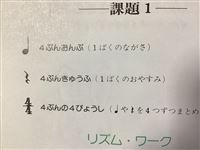 課題1
4ぶんおんぷ（1ぱくのながさ）
4ぶんきゅうふ（1ぱくのおやすみ）
4/4 4ぶんの4びょうし（♩や𝄽を4つずつまとめ
リズム・ワーク